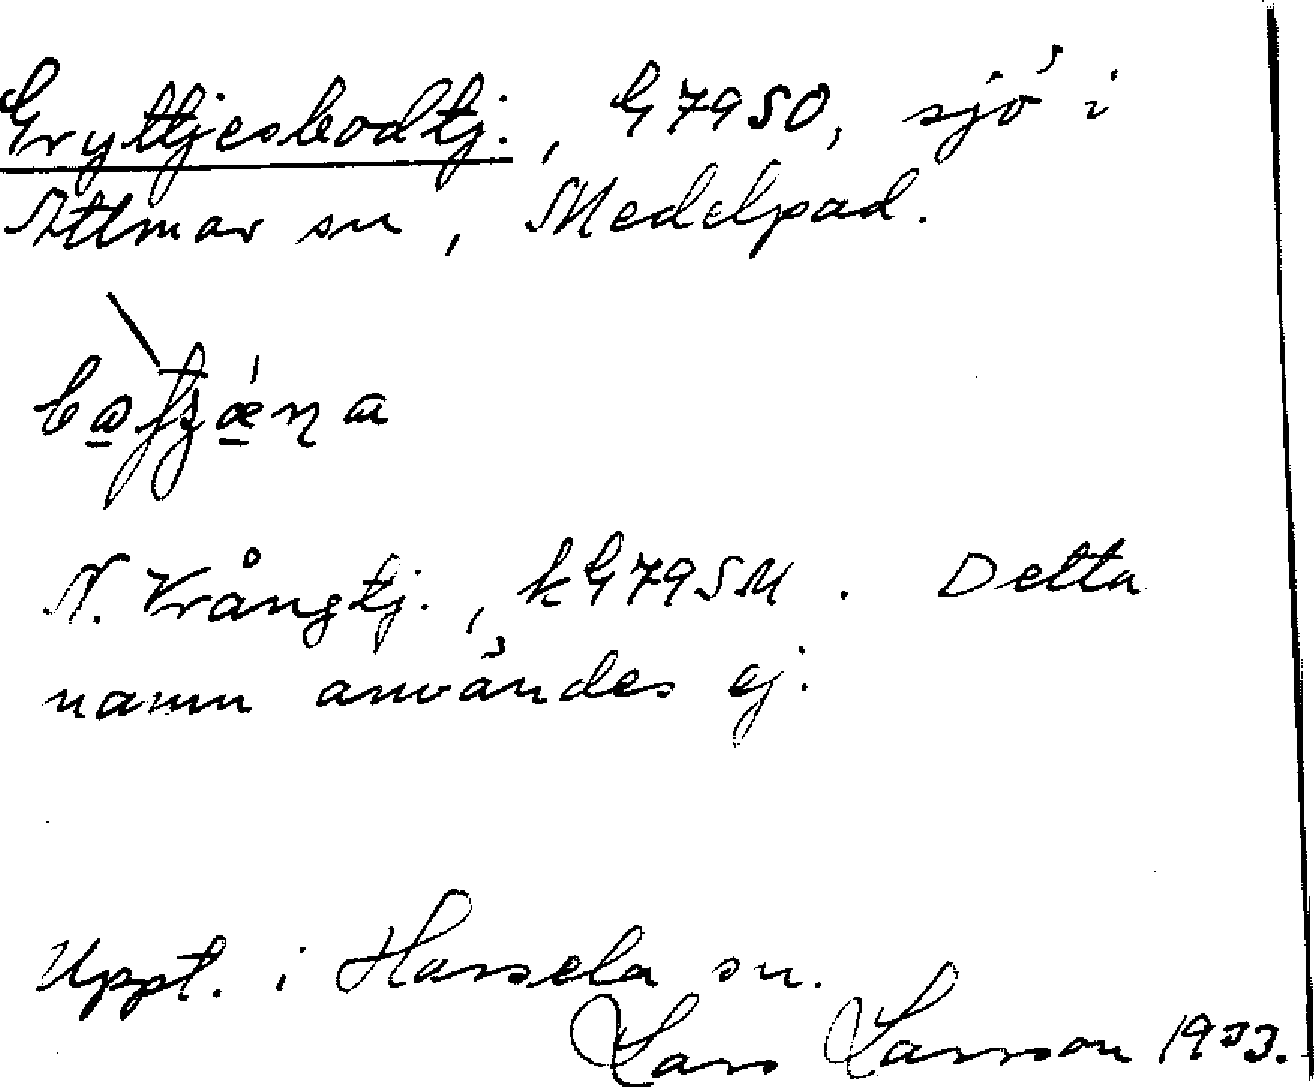 Gryttjesbodtj., G7950, sjö i
Attmar sn, Medelpad.
N. Vrångtj., kG795M. Detta
namn användes ej.
Uppt. i Hassela sn.
Lars Larsson 1933.